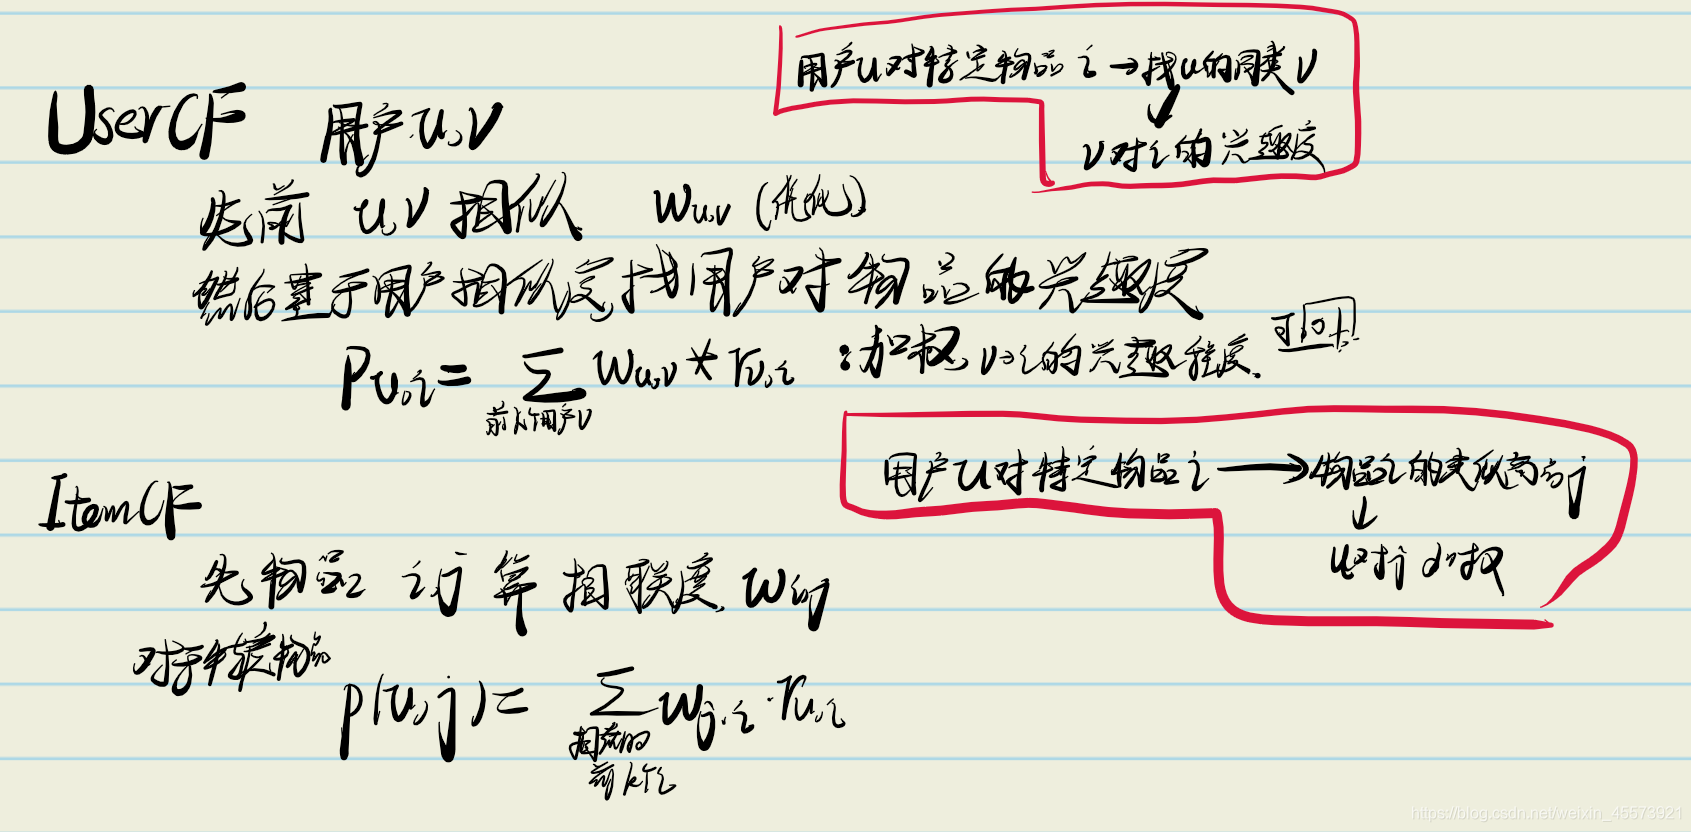 用户u对特定物品i→找u的同类v
↓
v对i的兴趣度
UserCF 用户u,v
先前 u,v相似 Wu,v (优化)
然后基于用户相似度,找用户对物品的兴趣度
Pu,i = Σ Wu,v * rv,i :加权,v→i的兴趣程度.
前k个用户v
用户u对特定物品i→物品i的类似高的j
↓
u对j
ItemCF
先物品i,j算相联度,Wij
对于特定物品
p(u,j) = Σ Wj,i · ru,i
前k个i
https://blog.csdn.net/weixin_45573921